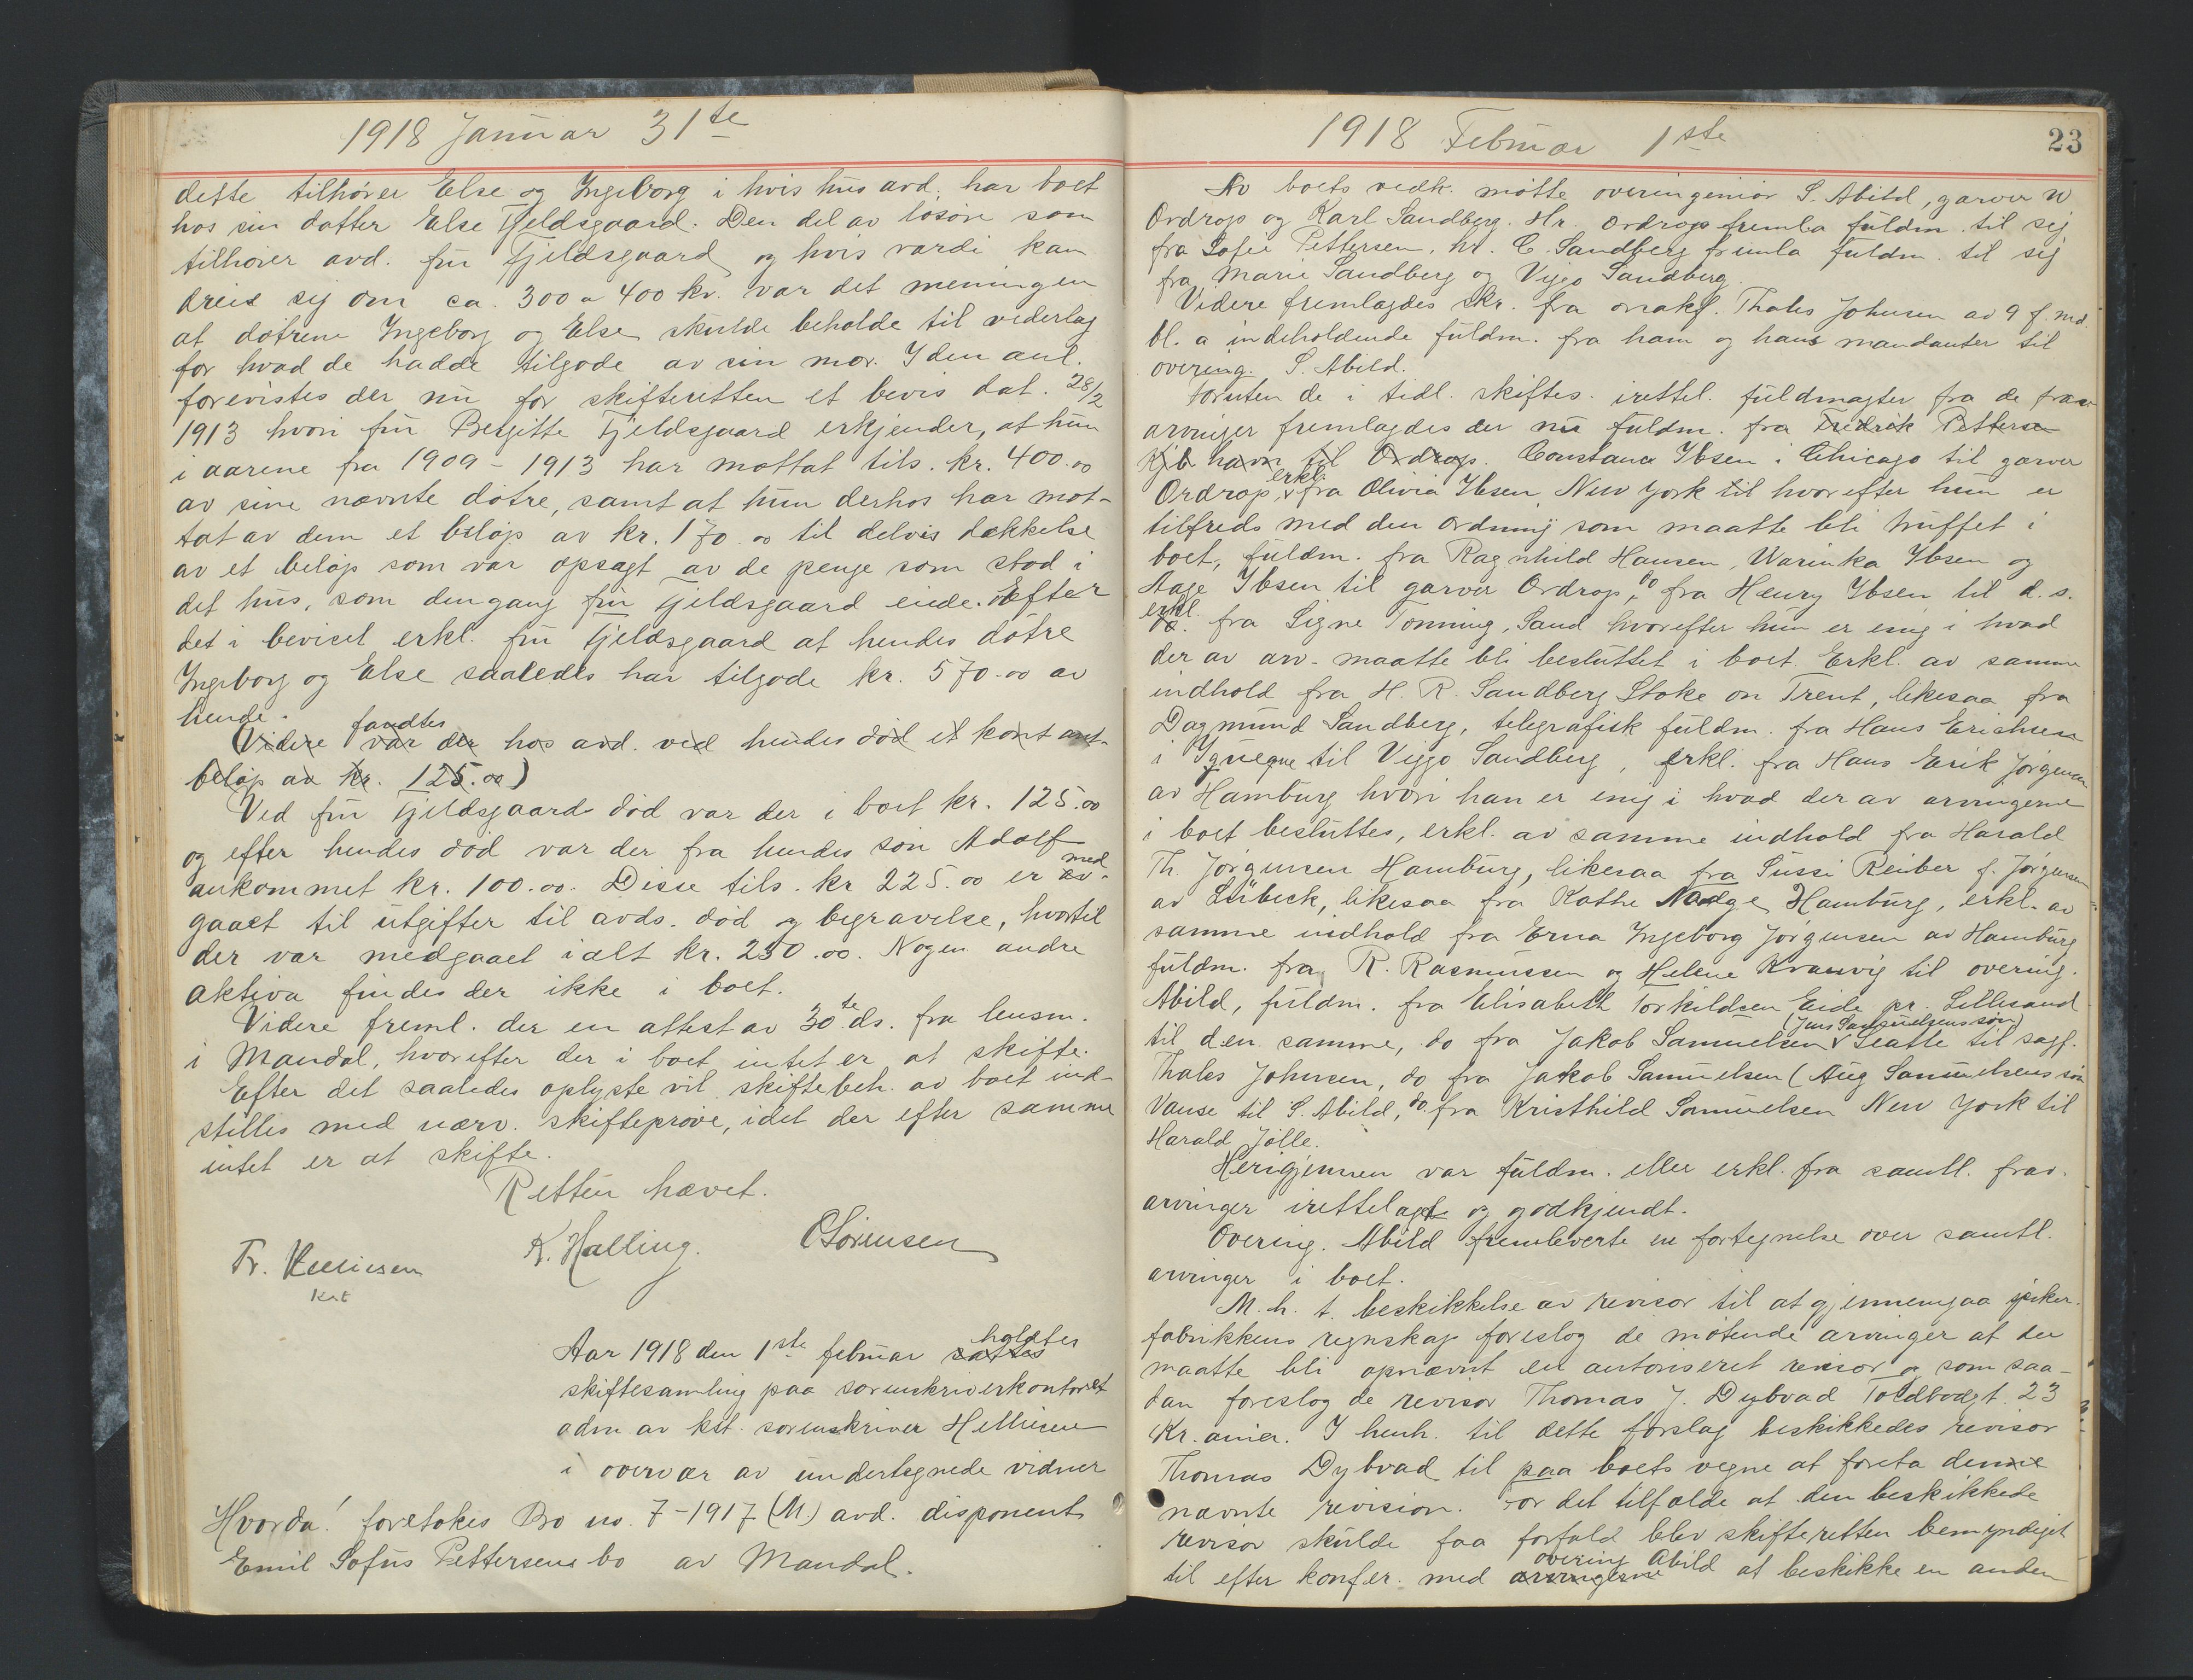 1918 Januar 31te
dette tilhører Else og Ingeborg i hvis hus avd. har boet
hos sin datter Else Fjeldsgaard. Den del av løsøre som
tilhører avd. fru Fjeldsgaard og hvis værdi kan
dreie sig om ca. 300 a 400 kr. var det meningen
at døtrene Ingeborg og Else skulde beholde til vederlag
for hvad de hadde tilgode av sin mor. I den anl.
forevistes der nu for skifteretten et bevis dat. 28/2
1913 hvori fru Bergitte Fjeldsgaard erkjender, at hun
i aarene fra 1909 - 1913 har mottat tils. kr. 400.00
av sine nævnte døtre, samt at hun derhos har mot-
tat av dem et beløp av kr. 170.00 til delvis dækkelse
av et beløp som var opsagt av de penge som stod i
det hus, som dengang fru Fjeldsgaard eiede. Efter
det i beviset erkl. fru Fjeldsgaard at hendes døtre
Ingeborg og Else saaledes har tilgode kr. 570.00 av
hende.
(Videre var fandtes der hos avd. ved hendes død et kont ant-
beløp av kr. 125.00)
Ved fru Fjeldsgaards død var der i boet kr. 125.00
og efter hendes død var der fra hendes søn Adolf
ankommet kr. 100.00. Disse tils. kr 225.00 er av- med
gaaet til utgifter til avds. død og begravelse, hvortil
der var medgaaet ialt kr. 250.00. Nogen andre
aktiva findes der ikke i boet.
Videre freml. der en attest av 30te ds. fra lensm.
i Mandal, hvorefter der i boet intet er at skifte.
Efter det saaledes oplyste vil skiftebeh. av boet ind-
stilles med nærv. skifteprøve, idet der efter samme
intet er at skifte.
Retten hævet.
Fr. Helliesen K. Halling. C Sørensen
kst
Aar 1918 den 1ste februar sattes holdtes
skiftesamling paa sorenskriverkontoret
adm av kst. sorenskriver Helliesen
i overvær av undertegnede vidner
Hvorda! foretokes Bo no. 7-1917 (M.) avd. disponent
Emil Sofus Pettersens bo av Mandal.
1918 Februar 1ste
23
Av boets vedk. møtte overingeniør S. Abild, garver W
Ordrop og Karl Sandberg. Hr. Ordrop fremla fuldm. til sig
fra Sofie Pettersen, hr. C. Sandberg fremla fuldm. til sig
fra Marie Sandberg og Viggo Sandberg.
Videre fremlagdes skr. fra Thales Johnsen av 9 f. md.
bl. a indeholdende fuldm. fra ham og hans mandanter til
overing. S. Abild.
Foruten de i tidl. skiftes. irettel. fuldmagter fra de frav.
arvinger fremlagdes der nu fuldm. fra Fredrik Petterse
Kjbhavn til Ordrop. Constance Ibsen i Chicago til garver
Ordrop, erkl. fra Olivia Ibsen New York til hvorefter hun er
tilfreds med den ordning som maatte bli truffet i
boet, fuldm. fra Ragnhild Hansen, Warinka Ibsen og
Aage Ibsen til garver Ordrop, do fra Henry Ibsen til d.s.
do. erkl. fra Signe Tønning, Sand hvorefter hun er enig i hvad
der av arv. maatte bli besluttet i boet. Erkl. av samme
indhold fra H. R. Sandberg Stoke on Trent, likesaa fra
Dagmund Sandberg, telegrafisk fuldm. fra Hans Erichsen
i Iqueque til Viggo Sandberg, erkl. fra Hans Erik Jørgensen
av Hamburg hvori han er enig i hvad der av arvingerne
i boet besluttes, erkl. av samme indhold fra Harald
Th. Jørgensen Hamburg, likesaa fra Sussi Reiber f. Jørgensen
av Lübeck, likesaa fra Käthe Hamburg, erkl. av
samme indhold fra Erna Ingeborg Jørgensen av Hamburg
fuldm. fra R. Rasmussen og Helene til overing.
Abild, fuldm. fra Elisabeth Torkildsen Eide pr. Lillesand
til den samme, do fra Jakob Samuelsen (Jens Samuelsens søn) Seatle til sagf.
Thales Johnsen, do fra Jakob Samuelsen (Aug Samuelsens søn
Vanse til S. Abild, do. fra Kristhild Samuelsen New York til
Harald Jølle.
Herigjennem var fuldm. eller erkl. fra samtl. frav.
arvinger irettelagt og godkjendt.
Overing. Abild fremleverte en fortegnelse over samtl.
arvinger i boet.
M. h. t. beskikkelse av revisor til at gjennemgaa spiker-
fabrikkens regnskap foreslog de møtende arvinger at der
maatte bli opnævnt en autoriseret revisor og som saa-
dan foreslog de revisor Thomas J. Dybvad Toldbodgt. 23
Kr.ania. I henh. til dette forslag beskikkedes revisor
Thomas Dybvad til paa boets vegne at foreta denne
nævnte revision. For det tilfælde at den beskikkede
revisor skulde faa forfald blev skifteretten bemyndiget
til efter konfer. med arvingerne overing Abild at beskikke en anden